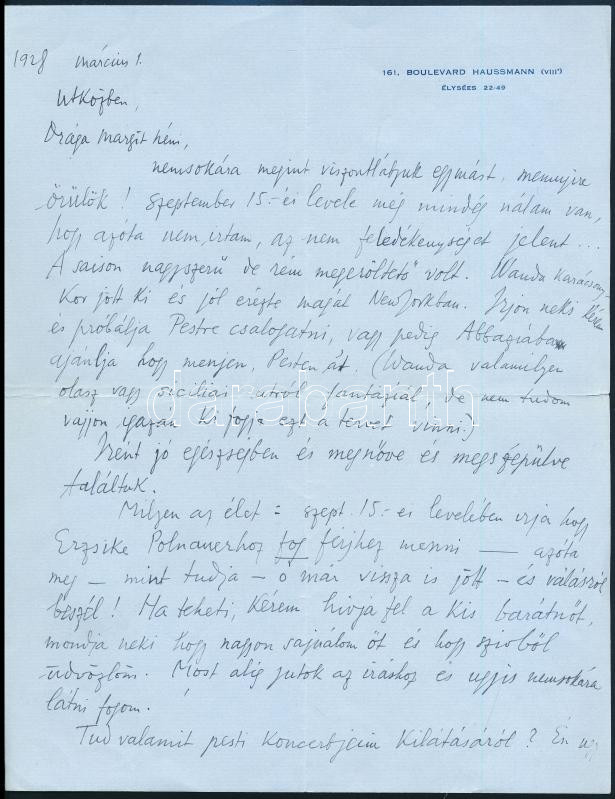 1928 március 1.
161, BOULEVARD HAUSSMANN (VIIIᵉ)
ÉLYSÉES 22-49
Utközben,
Drága Margit néni,
nemsokára megint viszontlátjuk egymást, mennyire
örülök! Szeptember 15.-éi levele még mindég nálam van,
hogy azóta nem irtam, az nem feledékenységet jelent...
A saison nagyszerű de rém megerőltető volt. Wanda Karácsony-
kor jött ki és jól érezte magát Newyorkban. Irjon neki kérem
és próbálja Pestre csalogatni, vagy pedig Abbaziában
ajánlja hogy menjen, Pesten át. (Wanda valamilyen
olasz vagy sziciliai utról fantáziál de nem tudom
vajjon igazán ki fogja ezt a tervet vinni.)
Irént jó egészségben és megnőve és megszépülve
találtuk.
Milyen az élet = szept. 15.-éi levelében irja hogy
Erzsike Polnauerhoz fog férjhez menni — azóta
meg — mint tudja — ő már vissza is jött — és válásról
beszél! Ha teheti, kérem hivja fel a kis barátnőt,
mondja neki hogy nagyon sajnálom őt és hogy szivből
üdvözlöm. Most alig jutok az iráshoz és ugyis nemsokára
látni fogom.!
Tud valamit pesti koncertjeim kilátásáról? Én ugy
darabanth